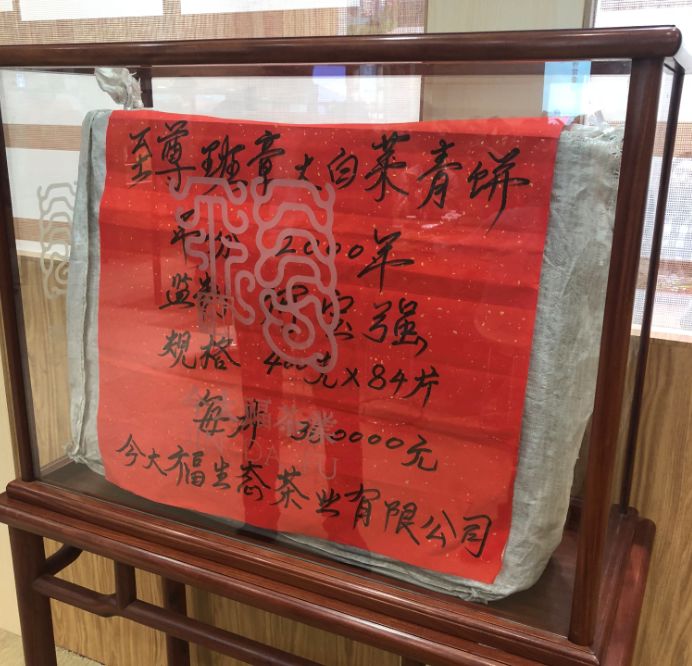 至尊班章大白菜青饼
年份 2000年
监制 宝强
规格 400克×84片
每片 380000元
今大福生态茶业有限公司